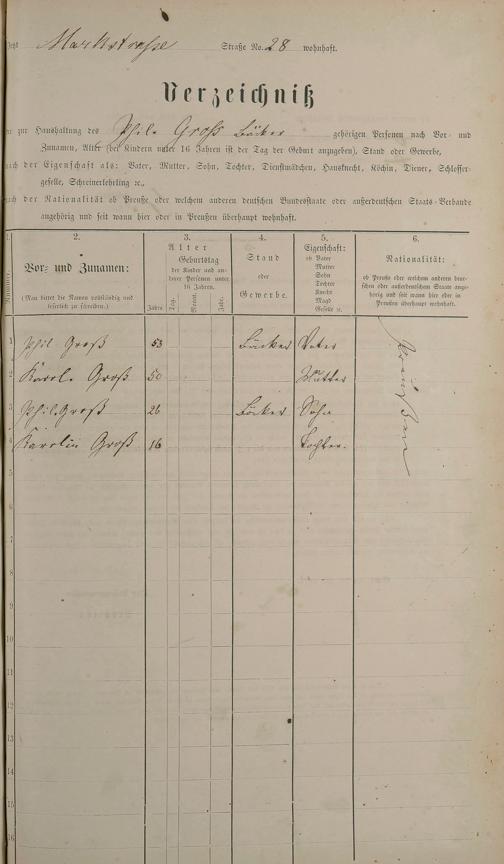 Jetzt Marktstrasse Straße No. 28 wohnhaft.
Verzeichniß
zur Haushaltung des Phil. Groß Bäcker gehörigen Personen nach Vor- und
Zunamen, Alter (bei Kindern unter 16 Jahren ist der Tag der Geburt anzugeben), Stand oder Gewerbe,
nach der Eigenschaft als: Vater, Mutter, Sohn, Tochter, Dienstmädchen, Hausknecht, Köchin, Diener, Schlosser-
geselle, Schreinerlehrling ꝛc.,
nach der Nationalität ob Preuße oder welchem anderen deutschen Bundesstaate oder außerdeutschen Staats-Verbande
angehörig und seit wann hier oder in Preußen überhaupt wohnhaft.
1. 2. 3. 4. 5. 6.
Nummer.
Vor- und Zunamen:
(Man bittet die Namen vollständig und
leserlich zu schreiben.)
Alter
Geburtstag
der Kinder und an-
derer Personen unter
16 Jahren.
Jahre Tag. Monat. Jahr.
Stand
oder
Gewerbe.
Eigenschaft:
ob Vater
Mutter
Sohn
Tochter
Knecht
Magd
Geselle ꝛc.
Nationalität:
ob Preuße oder welchem anderen deut-
schen oder außerdeutschen Staate ange-
hörig und seit wann hier oder in
Preußen überhaupt wohnhaft.
1 Phil. Groß 53 Bäcker Vater
2 Karole Groß 50 Mutter
3 Phil. Groß 26 Bäcker Sohn
4 Karolin Groß 16 Tochter.
Preußen
5
6
7
8
9
10
11
12
13
14
15
16